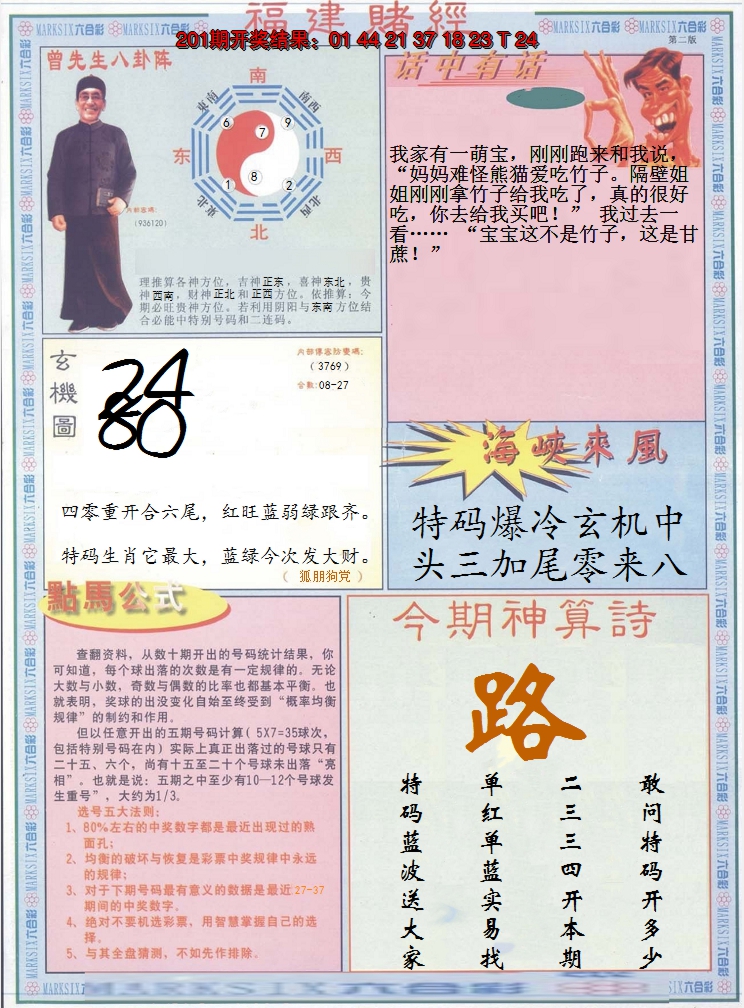 福建賭經
201期开奖结果：01 44 21 37 18 23 T 24
第二版
曾先生八卦阵
南
东南
西南
6
7
9
东
西
1
8
2
东北
西北
北
内部密碼:
(936120)
理推算各神方位，吉神正东，喜神东北，贵
神西南，财神正北和正西方位。依推算：今
期必旺贵神方位。若利用阴阳与东南方位结
合必能中特别号码和二连码。
话中有话
我家有一萌宝，刚刚跑来和我说，
“妈妈难怪熊猫爱吃竹子。隔壁姐
姐刚刚拿竹子给我吃了，真的很好
吃，你去给我买吧！” 我过去一
看…… “宝宝这不是竹子，这是甘
蔗！”
玄機圖
24
80
内部傳密防密碼:
(3769)
合數:08-27
四零重开合六尾，红旺蓝弱绿跟齐。
特码生肖它最大，蓝绿今次发大财。
（ 狐朋狗党 ）
海峽來風
特码爆冷玄机中
头三加尾零来八
點馬公式
查翻资料，从数十期开出的号码统计结果，你
可知道，每个球出落的次数是有一定规律的。无论
大数与小数，奇数与偶数的比率也都基本平衡。也
就表明，奖球的出没变化自始至终受到“概率均衡
规律”的制约和作用。
但以任意开出的五期号码计算( 5X7=35球次，
包括特别号码在内) 实际上真正出落过的号球只有
二十五、六个，尚有十五至二十个号球未出落“亮
相”。也就是说：五期之中至少有10—12个号球发
生重号”，大约为1/3。
选号五大法则:
1、80%左右的中奖数字都是最近出现过的熟
面孔；
2、均衡的破坏与恢复是彩票中奖规律中永远
的规律；
3、对于下期号码最有意义的数据是最近27-37
期间的中奖数字。
4、绝对不要机选彩票，用智慧掌握自己的选
择。
5、与其全盘猜测，不如先作排除.
今期神算詩
路
敢问特码开多少
二三三四开本期
单红单蓝实易找
特码蓝波送大家
MARKSIX六合彩